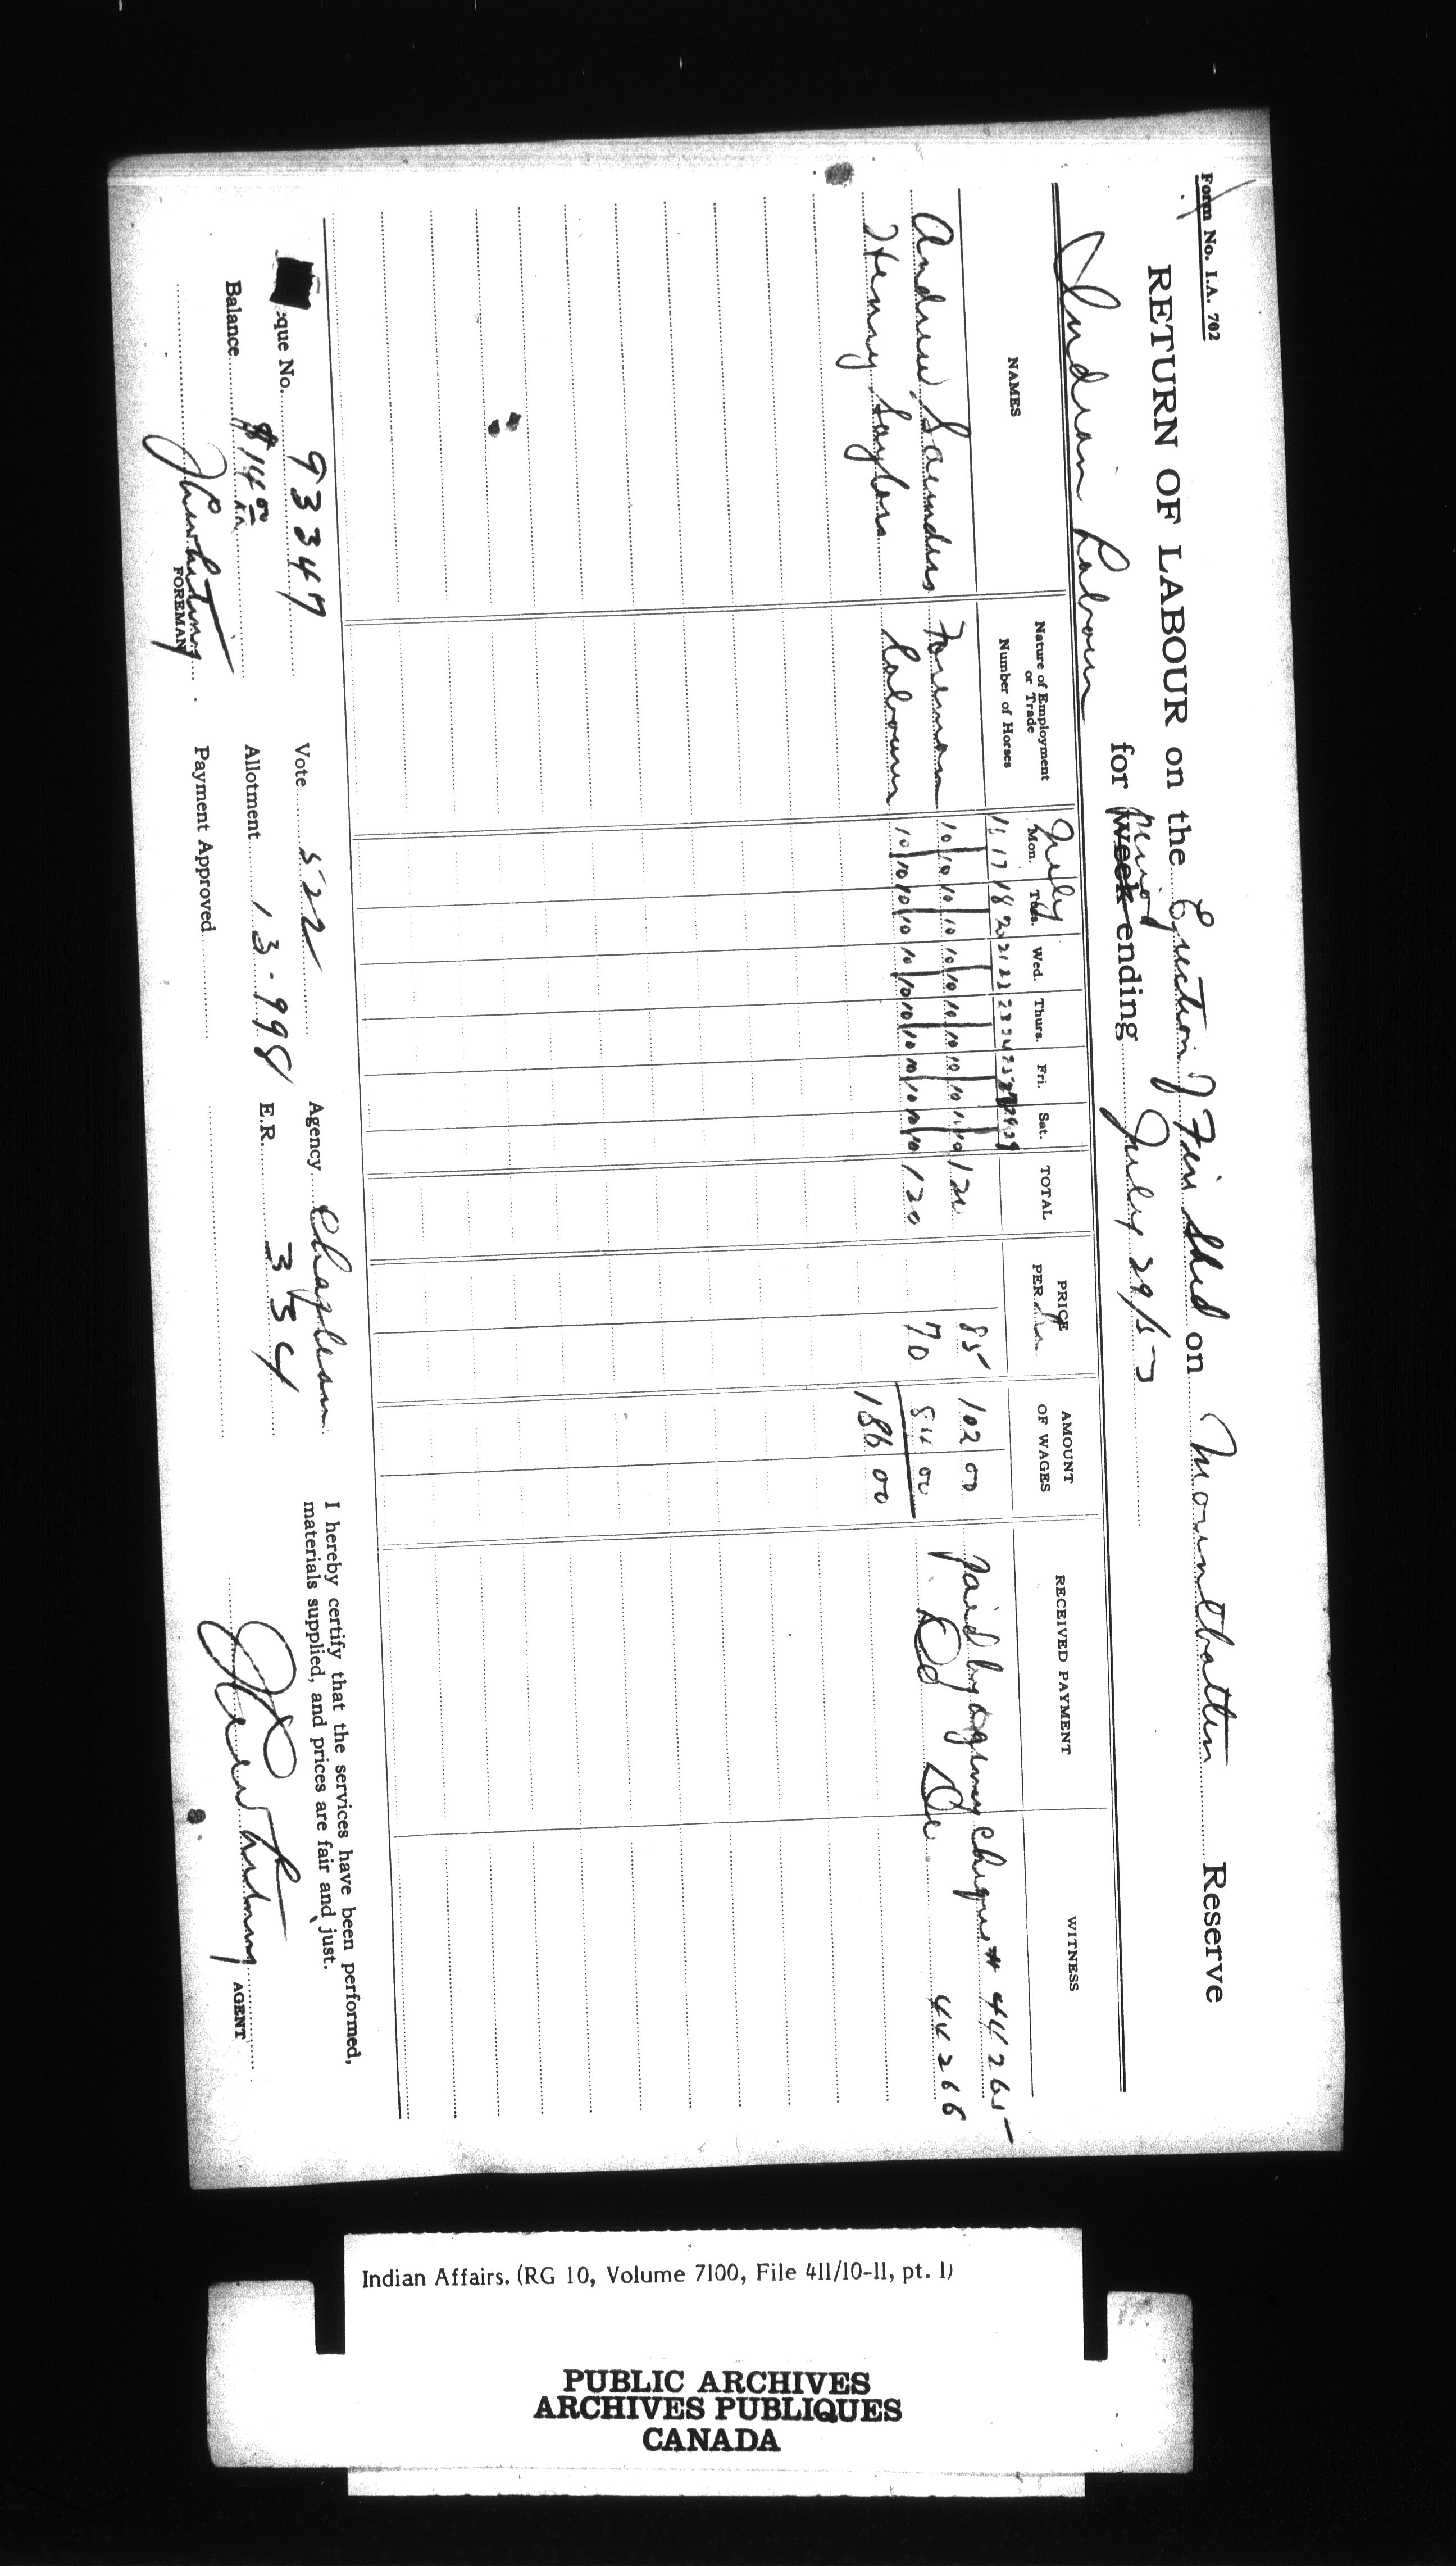 Form No. I.A. 702
RETURN OF LABOUR on the Erection of Fire Shed on Mountbatten Reserve
Indian Labour for week period ending July 29/5
NAMES
Nature of Employment or Trade
Number of Horses
July
Mon. Tues. Wed. Thurs. Fri. Sat.
TOTAL
PRICE PER hr
AMOUNT OF WAGES
RECEIVED PAYMENT
WITNESS
17 18 20 21 22 23 24 25 29
Andrew Saunders Foreman 10 10 10 10 10 10 10 10 10 10 10 10 120 85 102 00 paid by agency cheque # 44265
Henry Saylors Labourer 10 10 10 10 10 10 10 10 10 10 10 10 120 70 84 00 Do Do 44266
186 00
que No. 93347 Vote 522 Agency Chapleau
Balance $14 00 Allotment 13.998 E.R. 334
FOREMAN
Payment Approved
I hereby certify that the services have been performed,
materials supplied, and prices are fair and just.
AGENT
Indian Affairs. (RG 10, Volume 7100, File 411/10-11, pt. 1)
PUBLIC ARCHIVES
ARCHIVES PUBLIQUES
CANADA